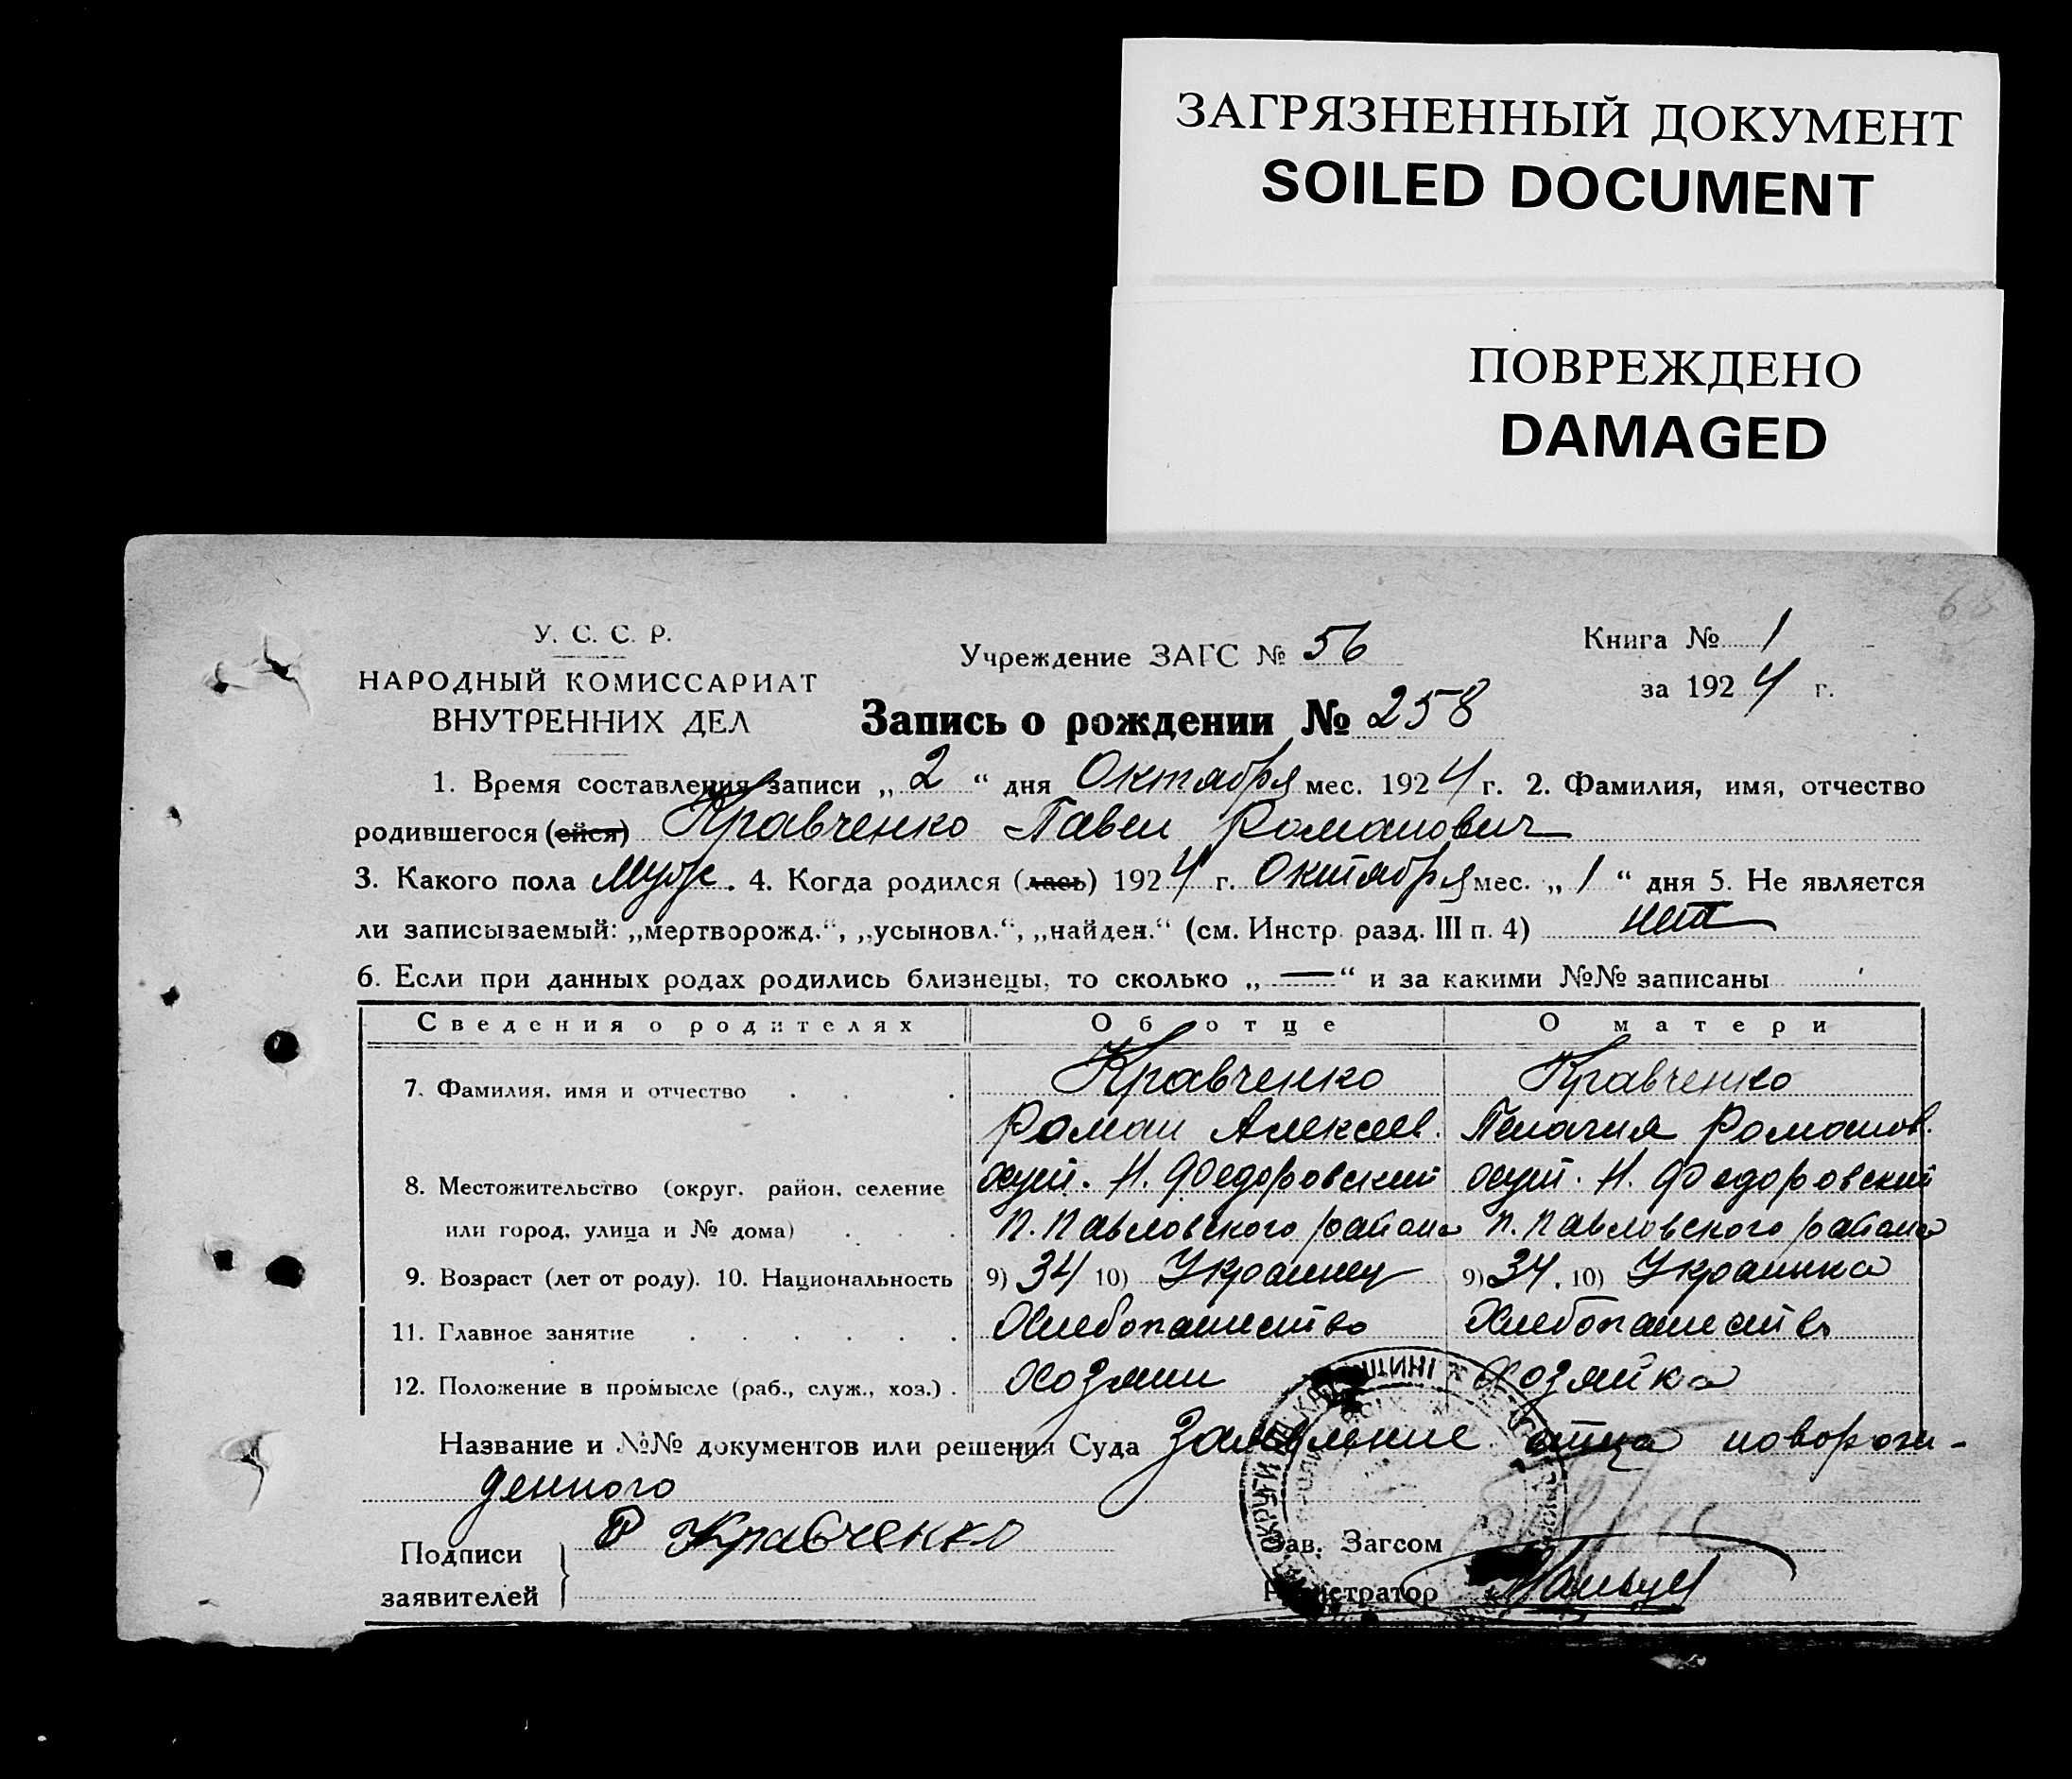 ЗАГРЯЗНЕННЫЙ ДОКУМЕНТ
SOILED DOCUMENT
ПОВРЕЖДЕНО
DAMAGED
68
У. С. С. Р.
НАРОДНЫЙ КОМИССАРИАТ
ВНУТРЕННИХ ДЕЛ
Учреждение ЗАГС № 56
Книга № 1
за 1924 г.
Запись о рождении № 258
1. Время составления записи „2“ дня Октября мес. 1924 г. 2. Фамилия, имя, отчество
родившегося (ейся) Кравченко Павел Романович
3. Какого пола Муж. 4. Когда родился (лась) 1924 г. Октября мес. „1“ дня 5. Не является
ли записываемый: „мертворожд.“, „усыновл.“, „найден.“ (см. Инстр. разд. III п. 4) нет
6. Если при данных родах родились близнецы, то сколько „—“ и за какими №№ записаны
Сведения о родителях Об отце О матери
7. Фамилия, имя и отчество Кравченко Кравченко
Роман Алексеев. Пелагия Романов.
8. Местожительство (округ, район, селение хут. Н. Федоровский хут. Н. Федоровский
или город, улица и № дома) П. Павловского района П. Павловского района
9. Возраст (лет от роду). 10. Национальность 9) 34 10) Украинец 9) 34. 10) Украинка
11. Главное занятие Хлебопашество Хлебопашество
12. Положение в промысле (раб., служ., хоз.) Хозяин Хозяйка
Название и №№ документов или решения Суда Заявление отца новорож-
денного
Подписи заявителей Р Кравченко
Зав. Загсом
Регистратор